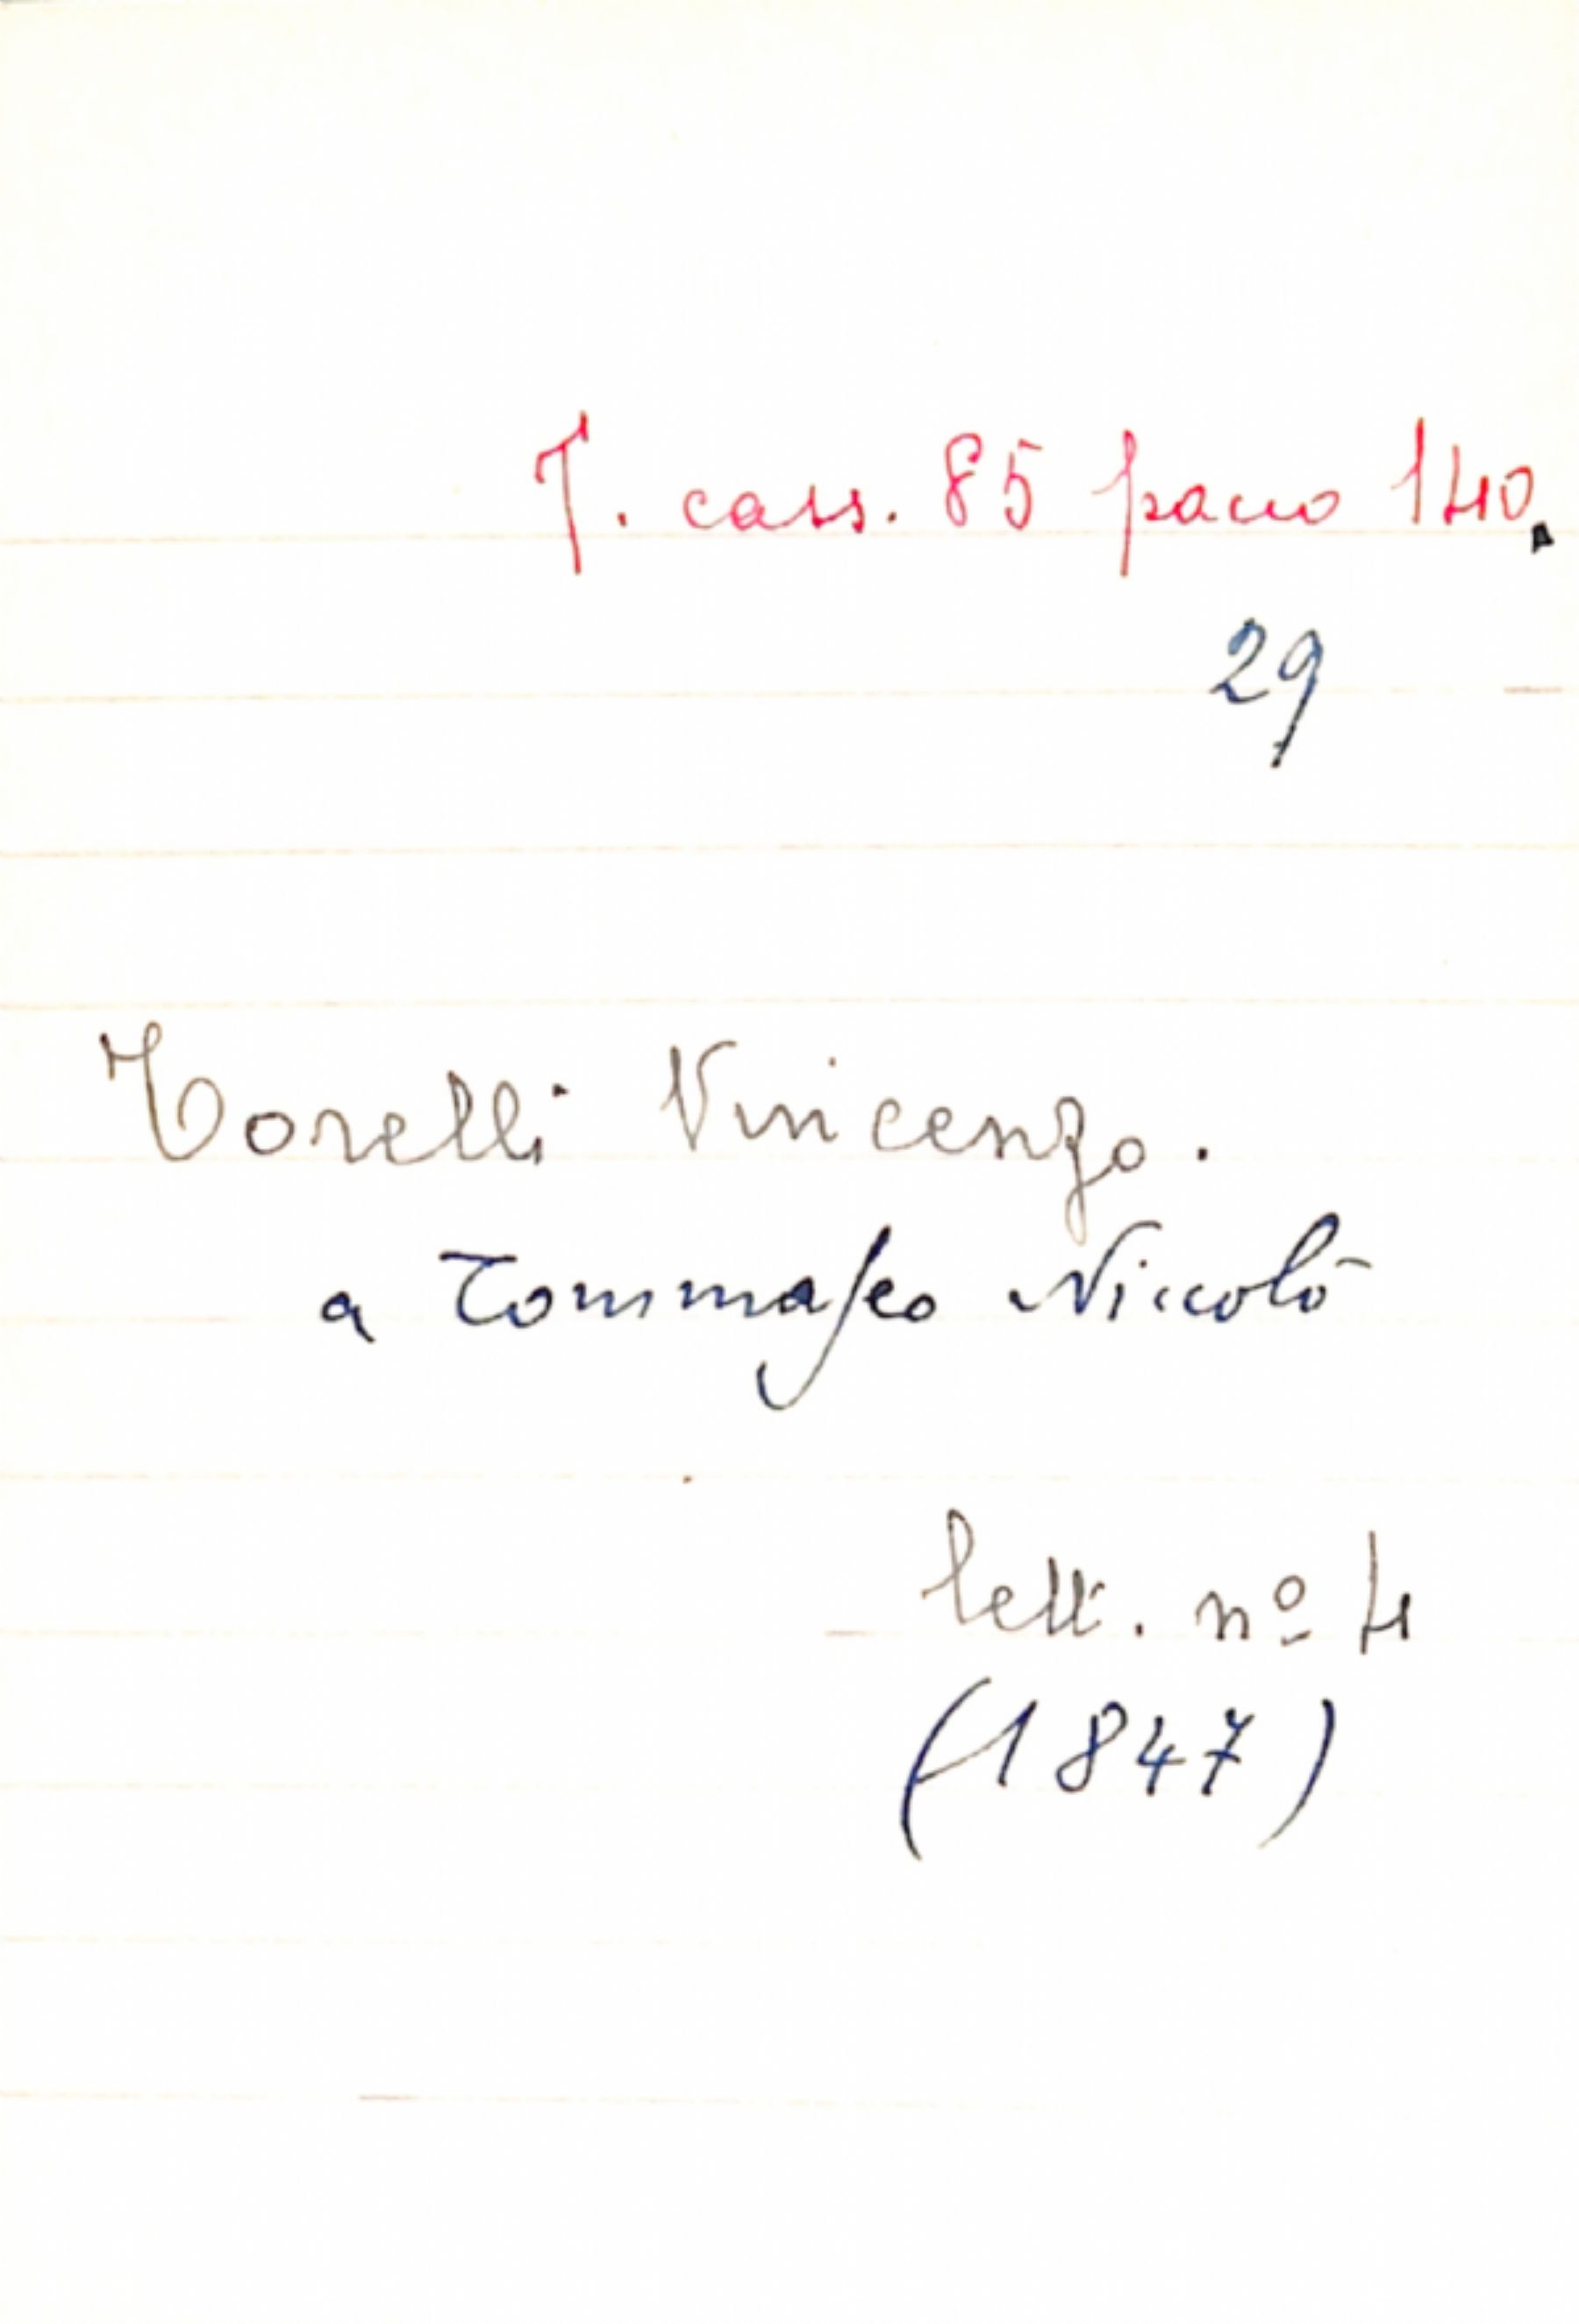 T. cass. 85 pacco 140.
29
Torelli Vincenzo.
a Tommaseo Niccolò
lett. nº 4
(1847)